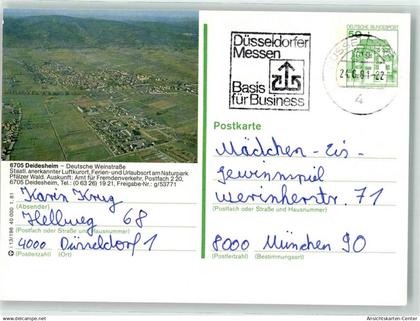 Düsseldorfer
Messen
Basis
für Business
50
DEUTSCHE BUNDESPOST
4
6705 Deidesheim – Deutsche Weinstraße
Staatl. anerkannter Luftkurort, Ferien- und Urlaubsort am Naturpark
Pfälzer Wald. Auskunft: Amt für Fremdenverkehr, Postfach 2 20,
6705 Deidesheim, Tel.: (0 63 26) 19 21, Freigabe-Nr.: g/53771
Karin Krug
(Absender)
Hellweg 68
(Postfach oder Straße und Hausnummer)
4000 Düsseldorf 1
(Postleitzahl) (Ort)
Postkarte
Mädchen-Eis-
gewinnspiel
Werinherstr. 71
(Postfach oder Straße und Hausnummer)
8000 München 90
(Postleitzahl) (Bestimmungsort)